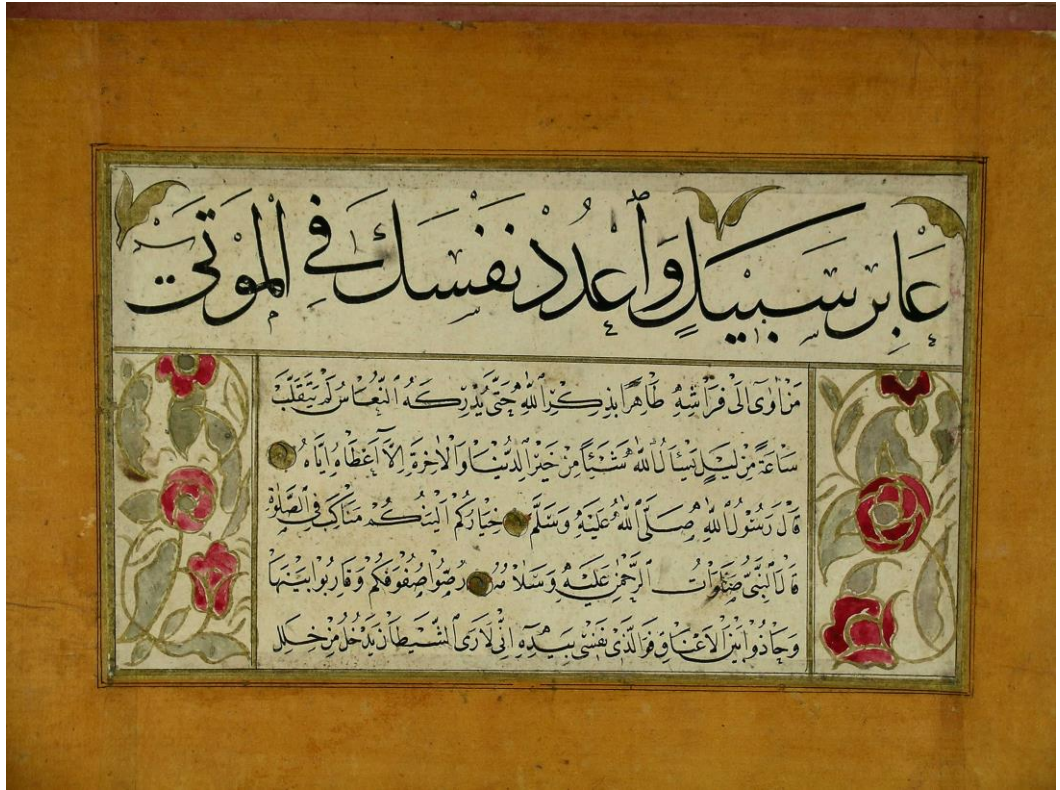 عَابِرُ سَبِيلٍ وَٱعْدُدْ نَفْسَكَ فِي الْمَوْتَىٰ
مَنْ اَوٰى اِلٰى فِرَاشِهِ طَاهِرًا يَذْكُرُ اللّٰهَ حَتّٰى يُدْرِكَهُ النُّعَاسُ لَمْ يَتَقَلَّبْ
سَاعَةً مِنْ لَيْلٍ يَسْئَالُ اللّٰهَ شَيْئًا مِنْ خَيْرِ الدُّنْيَا وَالْاٰخِرَةِ اِلَّا اَعْطَاهُ اِيَّاهُ
قَالَ رَسُولُ اللّٰهِ صَلَّى اللّٰهُ عَلَيْهِ وَسَلَّمَ خِيَارُكُمْ اَلْيَنُكُمْ مَنَاكِبَ فِي الصَّلٰوةِ
قَالَ النَّبِيُّ صَلَوَاتُ الرَّحْمٰنِ عَلَيْهِ وَسَلَامُهُ رُصُّوا صُفُوفَكُمْ وَقَارِبُوا بَيْنَهَا
وَحَاذُوا بَيْنَ الْاَعْنَاقِ فَوَالَّذِي نَفْسِي بِيَدِهِ اِنِّي لَاَرَى الشَّيْطَانَ يَدْخُلُ مِنْ خِلَلِ